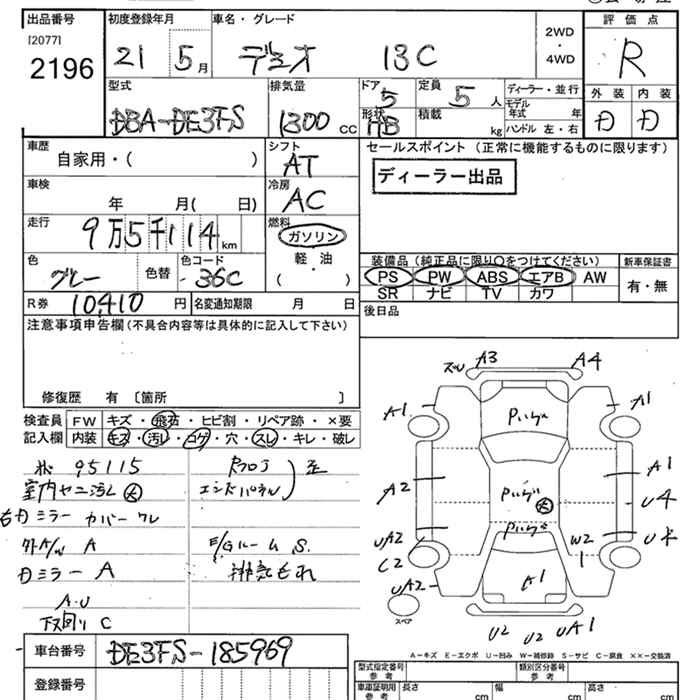 出品番号 初度登録年月 車名・グレード 評価点
[2077]
2196 21 5月 デミオ 13C 2WD・4WD R
型式 排気量 ドア 定員 ディーラー・並行 外装 内装
DBA-DE3FS 1300cc 5 5人 モデル年式 年
形状 HB 積載 kg ハンドル 左・右 D D
車歴 シフト セールスポイント (正常に機能するものに限ります)
自家用・( ) AT ディーラー出品
車検 冷房
年 月( 日) AC
走行 燃料
9万5千114km ガソリン
軽油
・
( )
色 色コード 装備品 (純正品に限り○をつけてください) 新車保証書
グレー 色替 36C PS PW ABS エアB AW 有・無
SR ナビ TV カワ
R券 10,410円 名変通知期限 月 日 後日品
注意事項申告欄 (不具合内容等は具体的に記入して下さい)
修復歴 有 [箇所 ]
検査員 FW キズ・飛石・ヒビ割・リペア跡・×要
記入欄 内装 キズ・汚レ・コゲ・穴・スレ・キレ・破レ
95115
室内ヤニ汚レ 大 エンドパネル
右Dミラー カバー ワレ
外A/W A E/Gルーム S.
Dミラー A 排気もれ
A・U
下廻り C
A3 A4
A1 A1
A2 A1
U4
UA2 W2
C2
UA2 A1
スペア
U2 U2 UA1
A-キズ E-エクボ U-凹み W-補修跡 S-サビ C-腐食 ××-交換済
車台番号 DE3FS-185969
登録番号
型式指定番号 参考 類別区分番号 参考
車庫証明用 参考 長さ cm 幅 cm 高さ cm